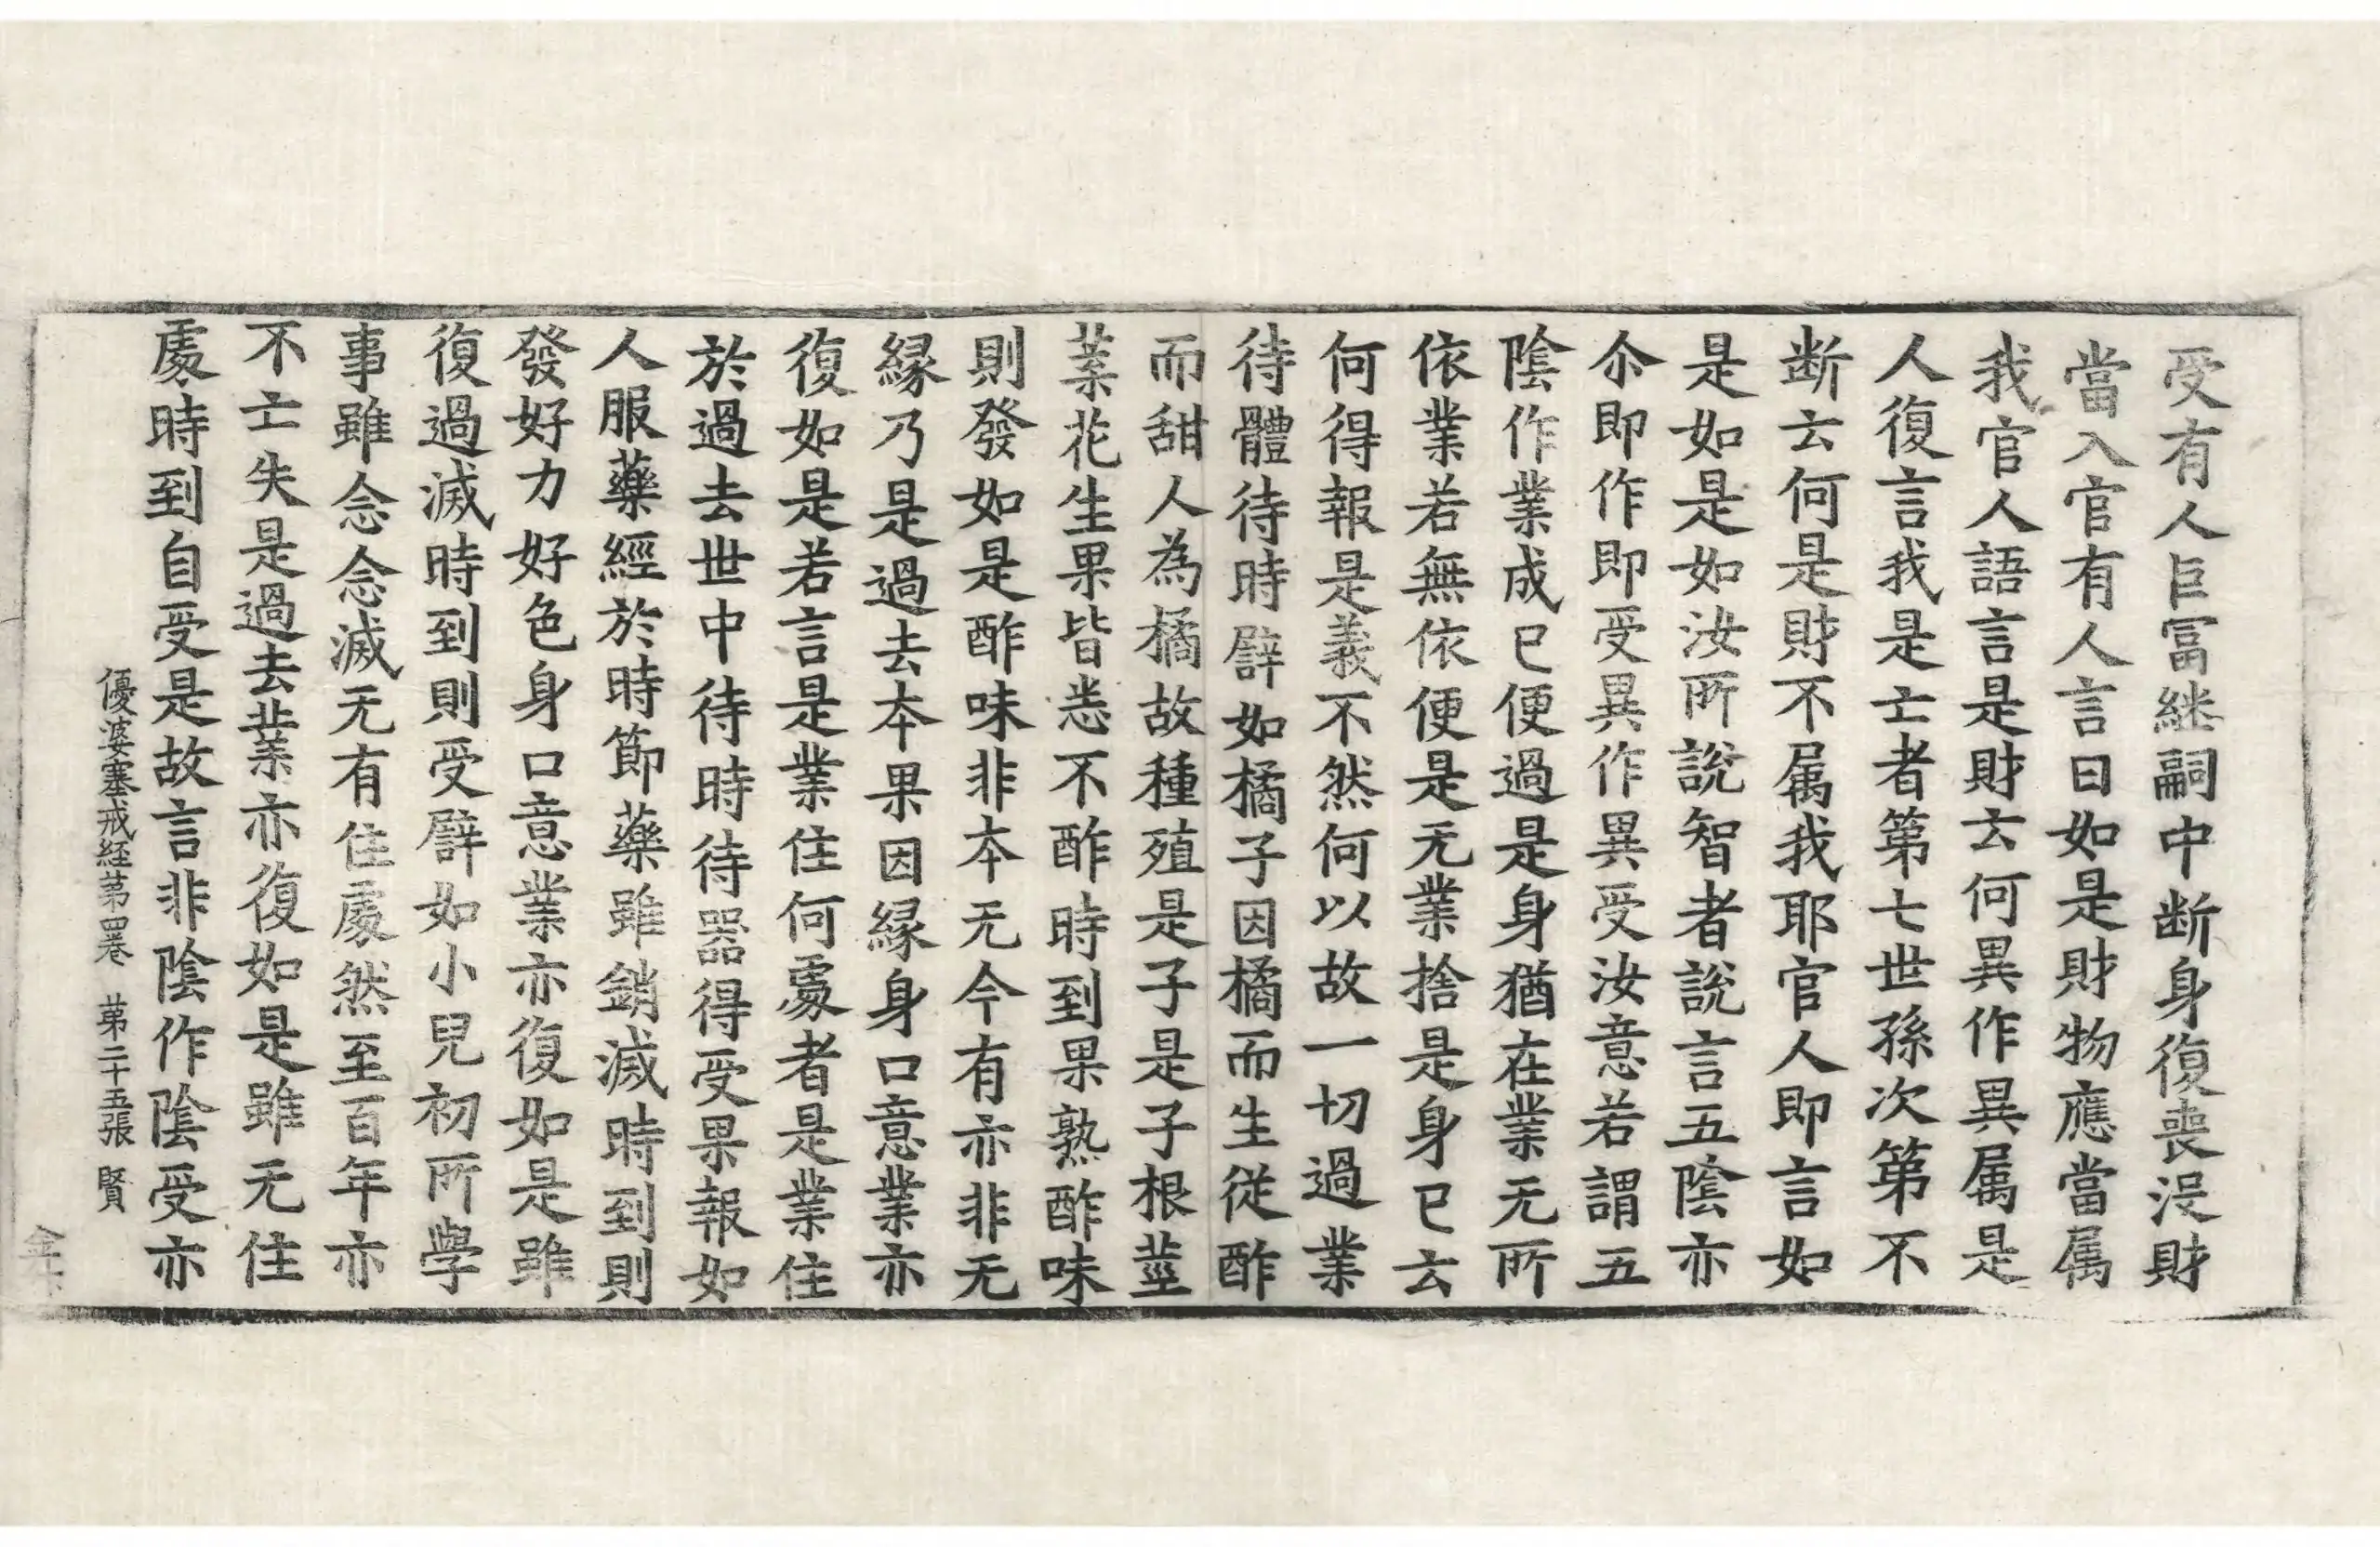 受有人巨冨継嗣中断身復喪没財
當入官有人言曰如是財物應當属
我官人語言是財云何異作異属是
人復言我是亡者第七世孫次第不
断云何是財不属我耶官人即言如
是如是如汝所說智者說言五陰亦
尒即作即受異作異受汝意若謂五
陰作業成已便過是身猶在業无所
依業若無依便是无業捨是身已云
何得報是義不然何以故一切過業
待體待時譬如橘子因橘而生從酢
而甜人為橘故種殖是子是子根莖
葉花生果皆悉不酢時到果熟酢味
則發如是酢味非本无今有亦非无
縁乃是過去本果因縁身口意業亦
復如是若言是業住何處者是業住
於過去世中待時待器得受果報如
人服藥經於時節藥雖銷滅時到則
發好力好色身口意業亦復如是雖
復過滅時到則受譬如小兒初所學
事雖念念滅无有住處然至百年亦
不亡失是過去業亦復如是雖无住
處時到自受是故言非陰作陰受亦
優婆塞戒経苐四卷 苐二十五張 賢